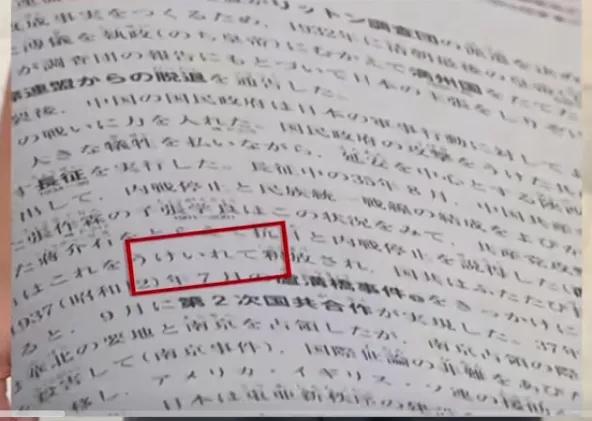 リットン調査団の派遣を決め
成事実をつくるため，1932年に清朝最後の皇帝
溥儀を執政(のち皇帝)にむかえて満州国をたてた
が調査団の報告にもとづいて日本の主張をしりぞけ
連盟からの脱退を通告した。
後，中国の国民政府は日本の軍事行動に対して
の戦いに力を入れた。国民政府の攻撃をうけた共
大きな犠牲を払いながら，延安を中心とする陝西
す長征を実行した。長征中の35年8月，中国共産
出して，内戦停止と民族統一戦線の結成をよびか
た張作霖の子張学良はこの状況をみて，共産党攻撃
た蒋介石を 抗 と内戦停止を説得した
はこれをうけいれて釈放され，国共はふたたび
1937(昭和12)年7月の盧溝橋事件をきっかけに
ると，9月に第2次国共合作が実現した。37年
は華北の要地と南京を占領したが，南京占領の際
を殺害して(南京事件)，国際世論の非難をあびた
移し，アメリカ・イギリス・ソ連の援助
日本は東亜新秩序の建設を